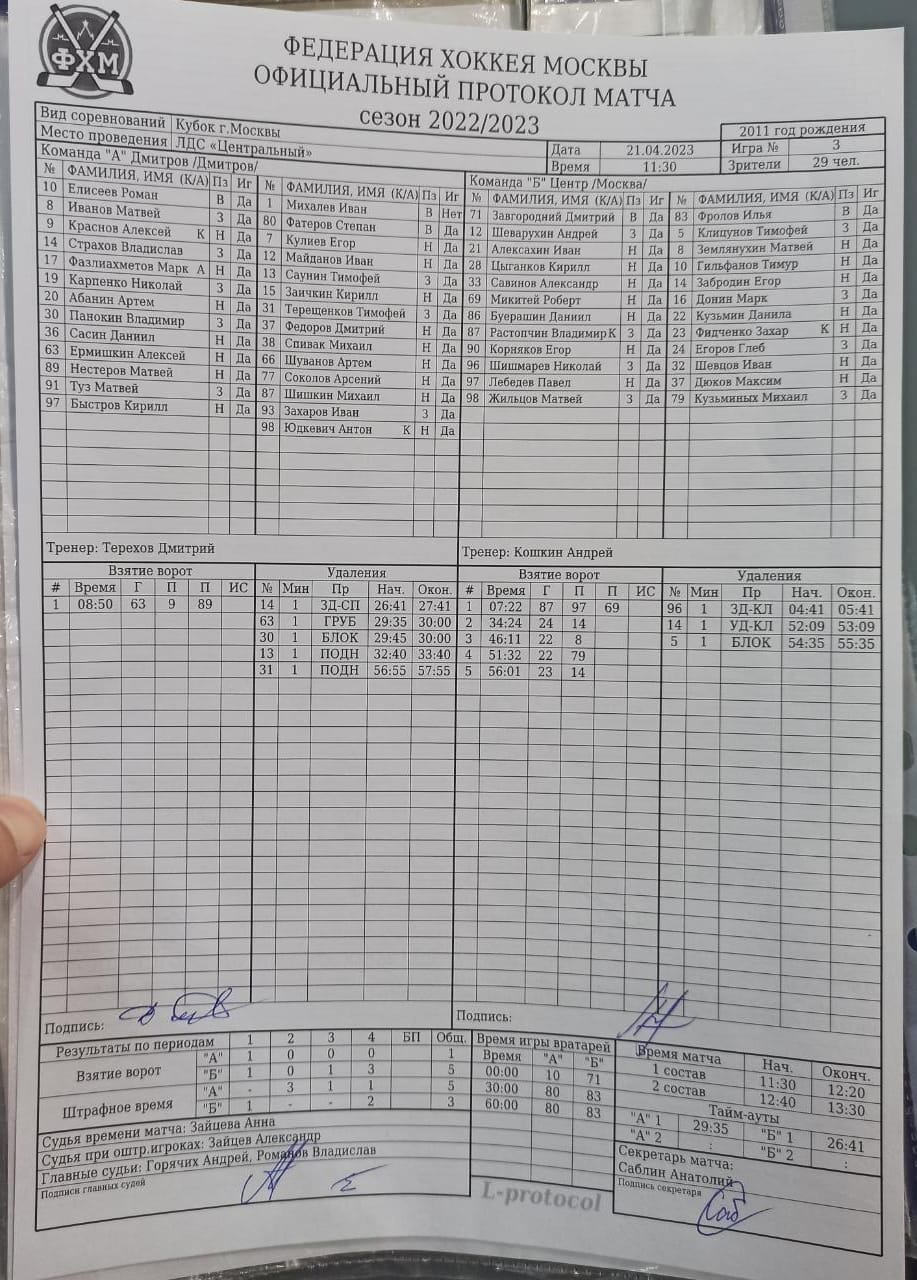 ФХМ
ФЕДЕРАЦИЯ ХОККЕЯ МОСКВЫ
ОФИЦИАЛЬНЫЙ ПРОТОКОЛ МАТЧА
сезон 2022/2023
2011 год рождения
Вид соревнований Кубок г.Москвы
Место проведения ЛДС «Центральный»
Дата 21.04.2023 Игра № 3
Время 11:30 Зрители 29 чел.
Команда "А" Дмитров /Дмитров/
№ ФАМИЛИЯ, ИМЯ (К/А) Пз Иг
10 Елисеев Роман В Да
8 Иванов Матвей З Да
9 Краснов Алексей К Н Да
14 Страхов Владислав З Да
17 Фазлиахметов Марк А Н Да
19 Карпенко Николай З Да
20 Абанин Артем Н Да
30 Панокин Владимир З Да
36 Сасин Даниил Н Да
63 Ермишкин Алексей Н Да
89 Нестеров Матвей Н Да
91 Туз Матвей З Да
97 Быстров Кирилл Н Да
№ ФАМИЛИЯ, ИМЯ (К/А) Пз Иг
1 Михалев Иван В Нет
80 Фатеров Степан В Да
7 Кулиев Егор Н Да
12 Майданов Иван Н Да
13 Саунин Тимофей З Да
15 Заичкин Кирилл Н Да
31 Терещенков Тимофей З Да
37 Федоров Дмитрий Н Да
38 Спивак Михаил Н Да
66 Шуванов Артем Н Да
77 Соколов Арсений Н Да
87 Шишкин Михаил Н Да
93 Захаров Иван З Да
98 Юдкевич Антон К Н Да
Команда "Б" Центр /Москва/
№ ФАМИЛИЯ, ИМЯ (К/А) Пз Иг
71 Завгородний Дмитрий В Да
12 Шеварухин Андрей З Да
21 Алексахин Иван Н Да
28 Цыганков Кирилл Н Да
33 Савинов Александр Н Да
69 Микитей Роберт Н Да
86 Буерашин Даниил Н Да
87 Растопчин Владимир К З Да
90 Корняков Егор Н Да
96 Шишмарев Николай З Да
97 Лебедев Павел Н Да
98 Жильцов Матвей З Да
№ ФАМИЛИЯ, ИМЯ (К/А) Пз Иг
83 Фролов Илья В Да
5 Клицунов Тимофей З Да
8 Землянухин Матвей Н Да
10 Гильфанов Тимур Н Да
14 Забродин Егор Н Да
16 Донин Марк З Да
22 Кузьмин Данила Н Да
23 Фидченко Захар К Н Да
24 Егоров Глеб З Да
32 Шевцов Иван Н Да
37 Дюков Максим Н Да
79 Кузьминых Михаил З Да
Тренер: Терехов Дмитрий
Тренер: Кошкин Андрей
Взятие ворот
# Время Г П П ИС
1 08:50 63 9 89
Удаления
№ Мин Пр Нач. Окон.
14 1 ЗД-СП 26:41 27:41
63 1 ГРУБ 29:35 30:00
30 1 БЛОК 29:45 30:00
13 1 ПОДН 32:40 33:40
31 1 ПОДН 56:55 57:55
Взятие ворот
# Время Г П П ИС
1 07:22 87 97 69
2 34:24 24 14
3 46:11 22 8
4 51:32 22 79
5 56:01 23 14
Удаления
№ Мин Пр Нач. Окон.
96 1 ЗД-КЛ 04:41 05:41
14 1 УД-КЛ 52:09 53:09
5 1 БЛОК 54:35 55:35
Подпись:
Подпись:
Результаты по периодам 1 2 3 4 БП Общ.
Взятие ворот
"А" 1 0 0 0 1
"Б" 1 0 1 3 5
Штрафное время
"А" - 3 1 1 5
"Б" 1 - - 2 3
Время игры вратарей
Время "А" "Б"
00:00 10 71
30:00 80 83
60:00 80 83
Время матча Нач. Оконч.
1 состав 11:30 12:20
2 состав 12:40 13:30
Тайм-ауты
"А" 1 29:35 "Б" 1 26:41
"А" 2 : "Б" 2 :
Судья времени матча: Зайцева Анна
Судья при оштр.игроках: Зайцев Александр
Главные судьи: Горячих Андрей, Романов Владислав
Подписи главных судей
Секретарь матча:
Саблин Анатолий
Подпись секретаря
L-protocol